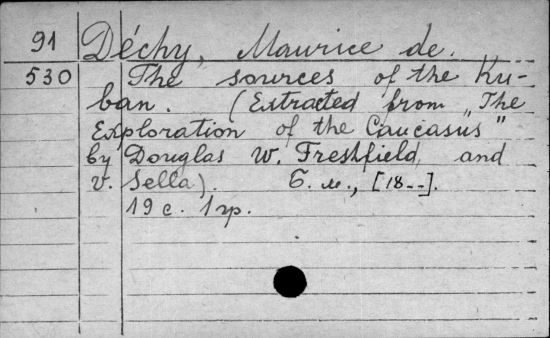 91 Déchy, Maurice de.
530 The sources of the Ku-
ban. (Extracted from „The
Exploration of the Caucasus"
by Douglas W. Freshfield, and
v. Sella). Б. м., [18--].
19 с. 1 гр.